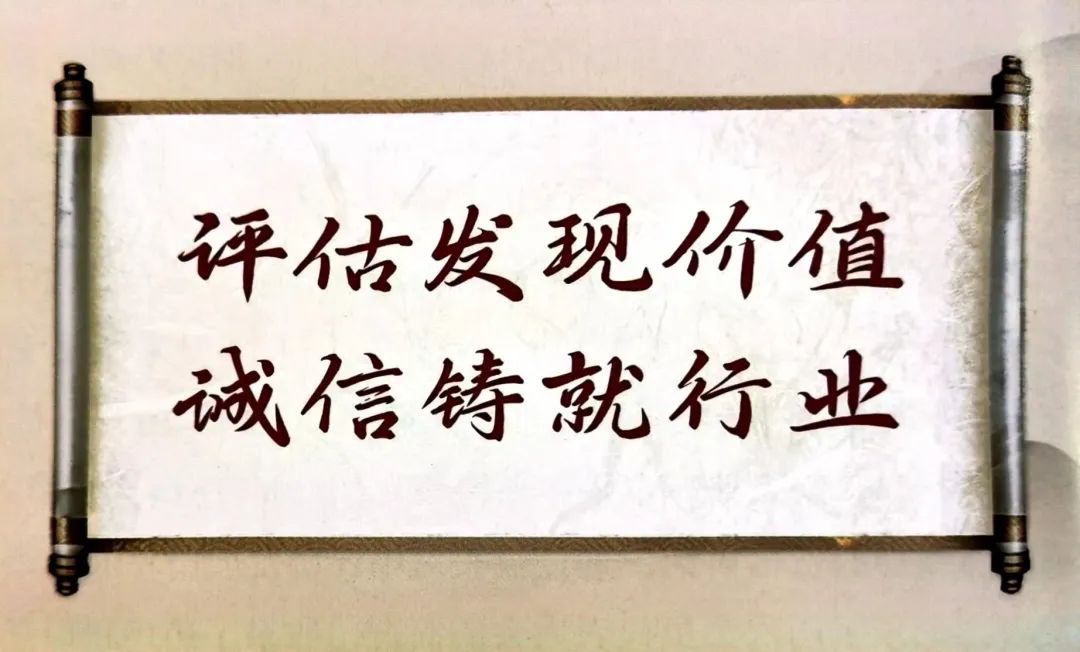 评估发现价值
诚信铸就行业